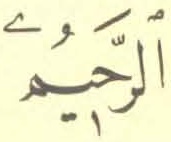 ٱلرَّحِيمُ